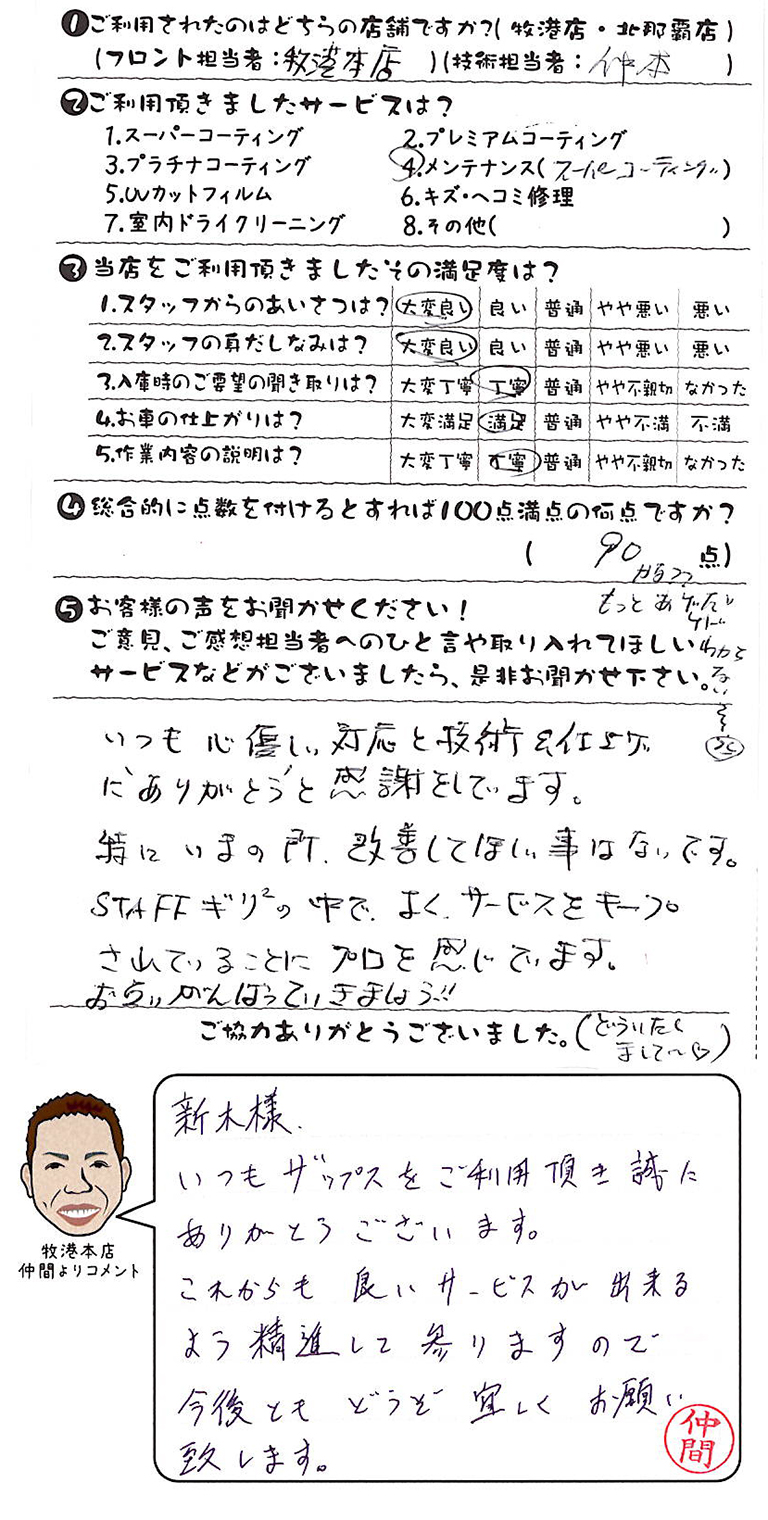 ❶ご利用されたのはどちらの店舗ですか?(牧港店・北那覇店)
(フロント担当者:牧港本店)(技術担当者:仲本)
❷ご利用頂きましたサービスは?
1.スーパーコーティング 2.プレミアムコーティング
3.プラチナコーティング 4.メンテナンス(スーパーコーティング)
5.UVカットフィルム 6.キズ・ヘコミ修理
7.室内ドライクリーニング 8.その他( )
❸当店をご利用頂きましたその満足度は?
1.スタッフからのあいさつは? 大変良い 良い 普通 やや悪い 悪い
2.スタッフの身だしなみは? 大変良い 良い 普通 やや悪い 悪い
3.入庫時のご要望の聞き取りは? 大変丁寧 丁寧 普通 やや不親切 なかった
4.お車の仕上がりは? 大変満足 満足 普通 やや不満 不満
5.作業内容の説明は? 大変丁寧 丁寧 普通 やや不親切 なかった
❹総合的に点数を付けるとすれば100点満点の何点ですか?
(90点)
もっとあげたい
けど
わからない
❺お客様の声をお聞かせください!
ご意見、ご感想担当者へのひと言や取り入れてほしい
サービスなどがございましたら、是非お聞かせ下さい。
いつも心優しい対応と技術&仕上げ
に"ありがとう"と感謝をしています。
特にいまの所、改善してほしい事はないです。
STAFFギリ²の中で、よく、サービスをキープ
されていることにプロを感じています。
お互いがんばっていきましょう!!
ご協力ありがとうございました。(どういたし
まして〜♡)
新木様、
いつもザップスをご利用頂き誠に
ありがとうございます。
これからも良いサービスが出来る
よう精進して参りますので
今後ともどうぞ宜しくお願い
致します。
仲間
牧港本店
仲間よりコメント